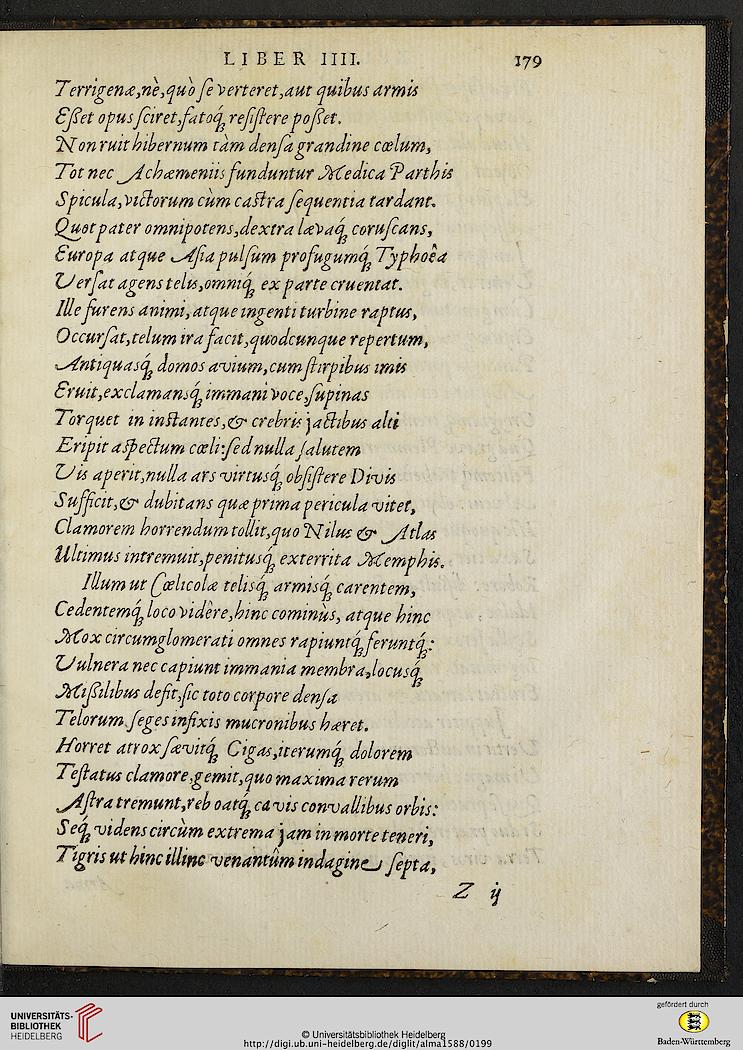 LIBER IIII. 179
Terrigenæ,nè,quò ſe verteret,aut quibus armis
Eſſet opus ſciret,fatoq́ꝫ reſiſtere poſſet.
Non ruit hibernum tàm denſa grandine cœlum,
Tot nec Achæmeniis funduntur Medica Parthis
Spicula,victorum cùm caſtra ſequentia tardant.
Quot pater omnipotens,dextra lævaq́ꝫ coruſcans,
Europa atque Aſia pulſum profugumq́ꝫ Typhoêa
Verſat agens telis,omniq́ꝫ ex parte cruentat.
Ille furens animi,atque ingenti turbine raptus,
Occurſat,telum ira facit,quodcunque repertum,
Antiquasq́ꝫ domos avium,cum ſtirpibus imis
Eruit,exclamansq́ꝫ immani voce,ſupinas
Torquet in inſtantes,& crebris jactibus alti
Eripit aſpectum cœli:ſed nulla ſalutem
Vis aperit,nulla ars virtusq́ꝫ obſiſtere Divis
Sufficit,& dubitans quæ prima pericula vitet,
Clamorem horrendum tollit,quo Nilus & Atlas
Ultimus intremuit,penitusq́ꝫ exterrita Memphis.
Illum ut Cœlicolæ telisq́ꝫ armisq́ꝫ carentem,
Cedentemq́ꝫ loco vidêre,hinc cominùs, atque hinc
Mox circumglomerati omnes rapiuntq́ꝫ feruntq́ꝫ:
Vulnera nec capiunt immania membra,locusq́ꝫ
Miſſilibus defit,ſic toto corpore denſa
Telorum ſeges infixis mucronibus hæret.
Horret atrox ſævitq́ꝫ Gigas,iterumq́ꝫ dolorem
Teſtatus clamore,gemit,quo maxima rerum
Aſtra tremunt,reboatq́ꝫ cavis convallibus orbis:
Seq́ꝫ videns circùm extrema jam in morte teneri,
Tigris ut hinc illinc venantûm indagine ſepta,
Z ij
UNIVERSITÄTS-
BIBLIOTHEK
HEIDELBERG
© Universitätsbibliothek Heidelberg
http://digi.ub.uni-heidelberg.de/diglit/alma1588/0199
gefördert durch
Baden-Württemberg